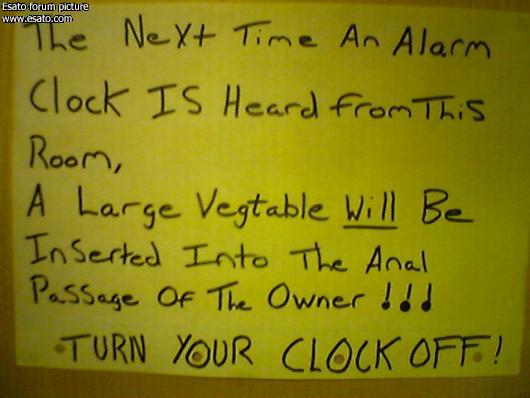 Esato forum picture
www.esato.com
The Next Time An Alarm
Clock IS Heard from This
Room,
A Large Vegtable Will Be
Inserted Into The Anal
Passage Of The Owner !!!
TURN YOUR CLOCK OFF!